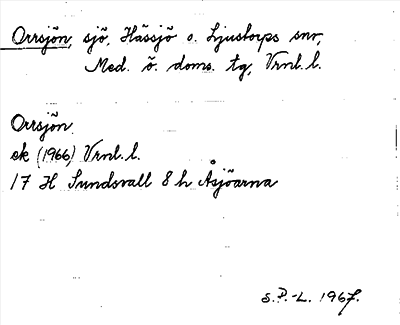 Orrsjön, sjö, Hässjö o. Ljustorps snr,
Med. ö. doms. tg, Vrnl. l.
Orrsjön
ek (1966) Vrnl. l.
17 H Sundsvall 8 h Åsjöarna
S.P.-L. 1967.